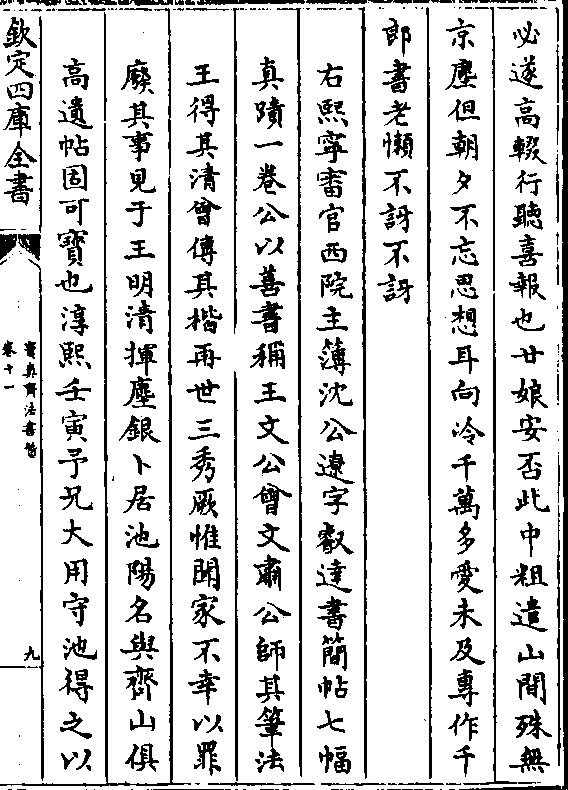 必遂高輟行聽喜報也廿娘安否此中粗遣山間殊無
京塵但朝夕不忘思想耳向冷千萬多愛未及專作千
郎書老懶不訝不訝
右熙寧審官西院主簿沈公遼字叡達書簡帖七幅
真蹟一卷公以善書稱王文公曾文肅公師其筆法
王得其清曾傳其楷再世三秀厥惟聞家不幸以罪
廢其事見于王明清揮塵銀卜居池陽名與齊山俱
高遺帖固可寶也淳熙壬寅予兄大用守池得之以
欽定四庫全書
寶真齋法書贊
卷十一
九